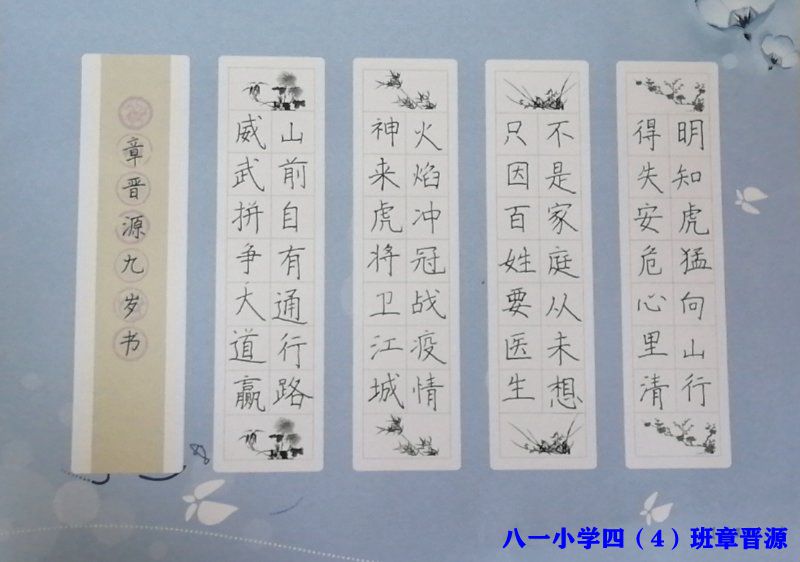 明知虎猛向山行
得失安危心里清
不是家庭从未想
只因百姓要医生
火焰冲冠战疫情
神来虎将卫江城
山前自有通行路
威武拼争大道赢
章晋源九岁书
八一小学四（4）班章晋源